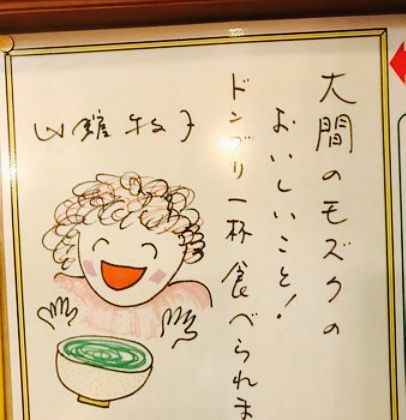 大間のモズクの
おいしいこと!
ドンブリ一杯食べられま
牧子